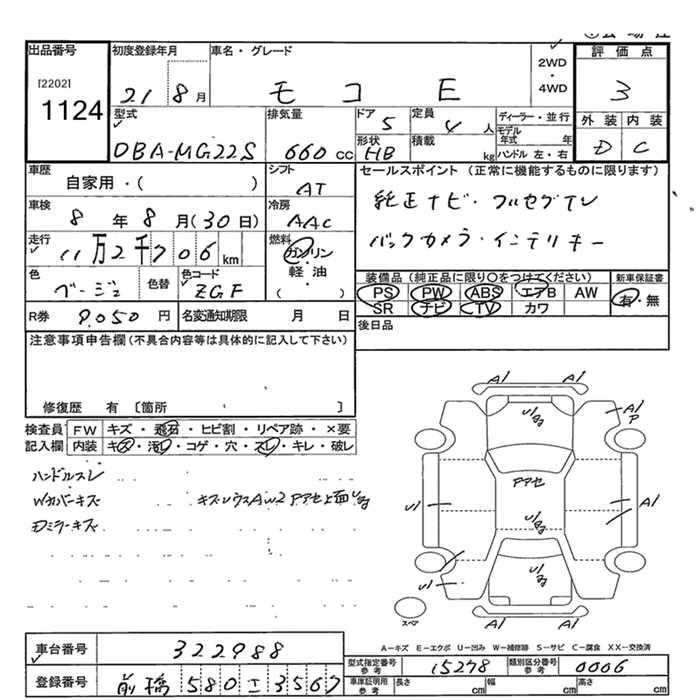 出品番号 初度登録年月 車名・グレード 2WD・4WD 評価点
[2202]
1124
21 8月 モコ E 3
型式 排気量 ドア 定員 ディーラー・並行 外装 内装
DBA-MG22S 660cc 5 4人 モデル年式 年 D C
形状 HB 積載 kg ハンドル左・右
車歴 シフト セールスポイント（正常に機能するものに限ります）
自家用・（ ） AT
純正ナビ・フルセグTV
車検 冷房
8年8月（30日） AAC
バックカメラ・インテリキー
走行 燃料
11万2千706km ガソリン・軽油（ ）
装備品（純正品に限り○をつけてください） 新車保証書
色 色替 色コード
ベージュ ZGF
PS PW ABS エアB AW 有・無
SR ナビ TV カワ
R券 9.050円 名変通知期限 月 日
後日品
注意事項申告欄（不具合内容等は具体的に記入して下さい）
修復歴 有〔箇所 〕
検査員記入欄 FW キズ・飛石・ヒビ割・リペア跡・×要
内装 キズ・汚レ・コゲ・穴・スレ・キレ・破レ
ハンドルスレ
Wカバーキズ
Dミラーキズ
A1 A1
A1 ア
アアセ
A1
U1
U1
A1 A1
スペア
A−キズ E−エクボ U−凹み W−補修跡 S−サビ C−腐食 XX−交換済
車台番号 322988
登録番号 前橋 580 エ 3567
型式指定番号参考 15278 類別区分番号参考 0006
車庫証明用参考 長さ cm 幅 cm 高さ cm